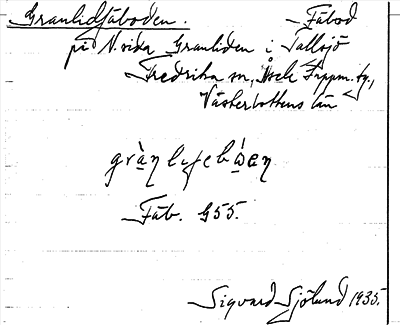 Granlidfäboden. – Fäbod
på N. sida Granliden i Tallsjö
Fredrika sn, Åsele lappm. tg.,
Västerbottens län
Fäb. G55.
Sigvard Sjölund 1935.